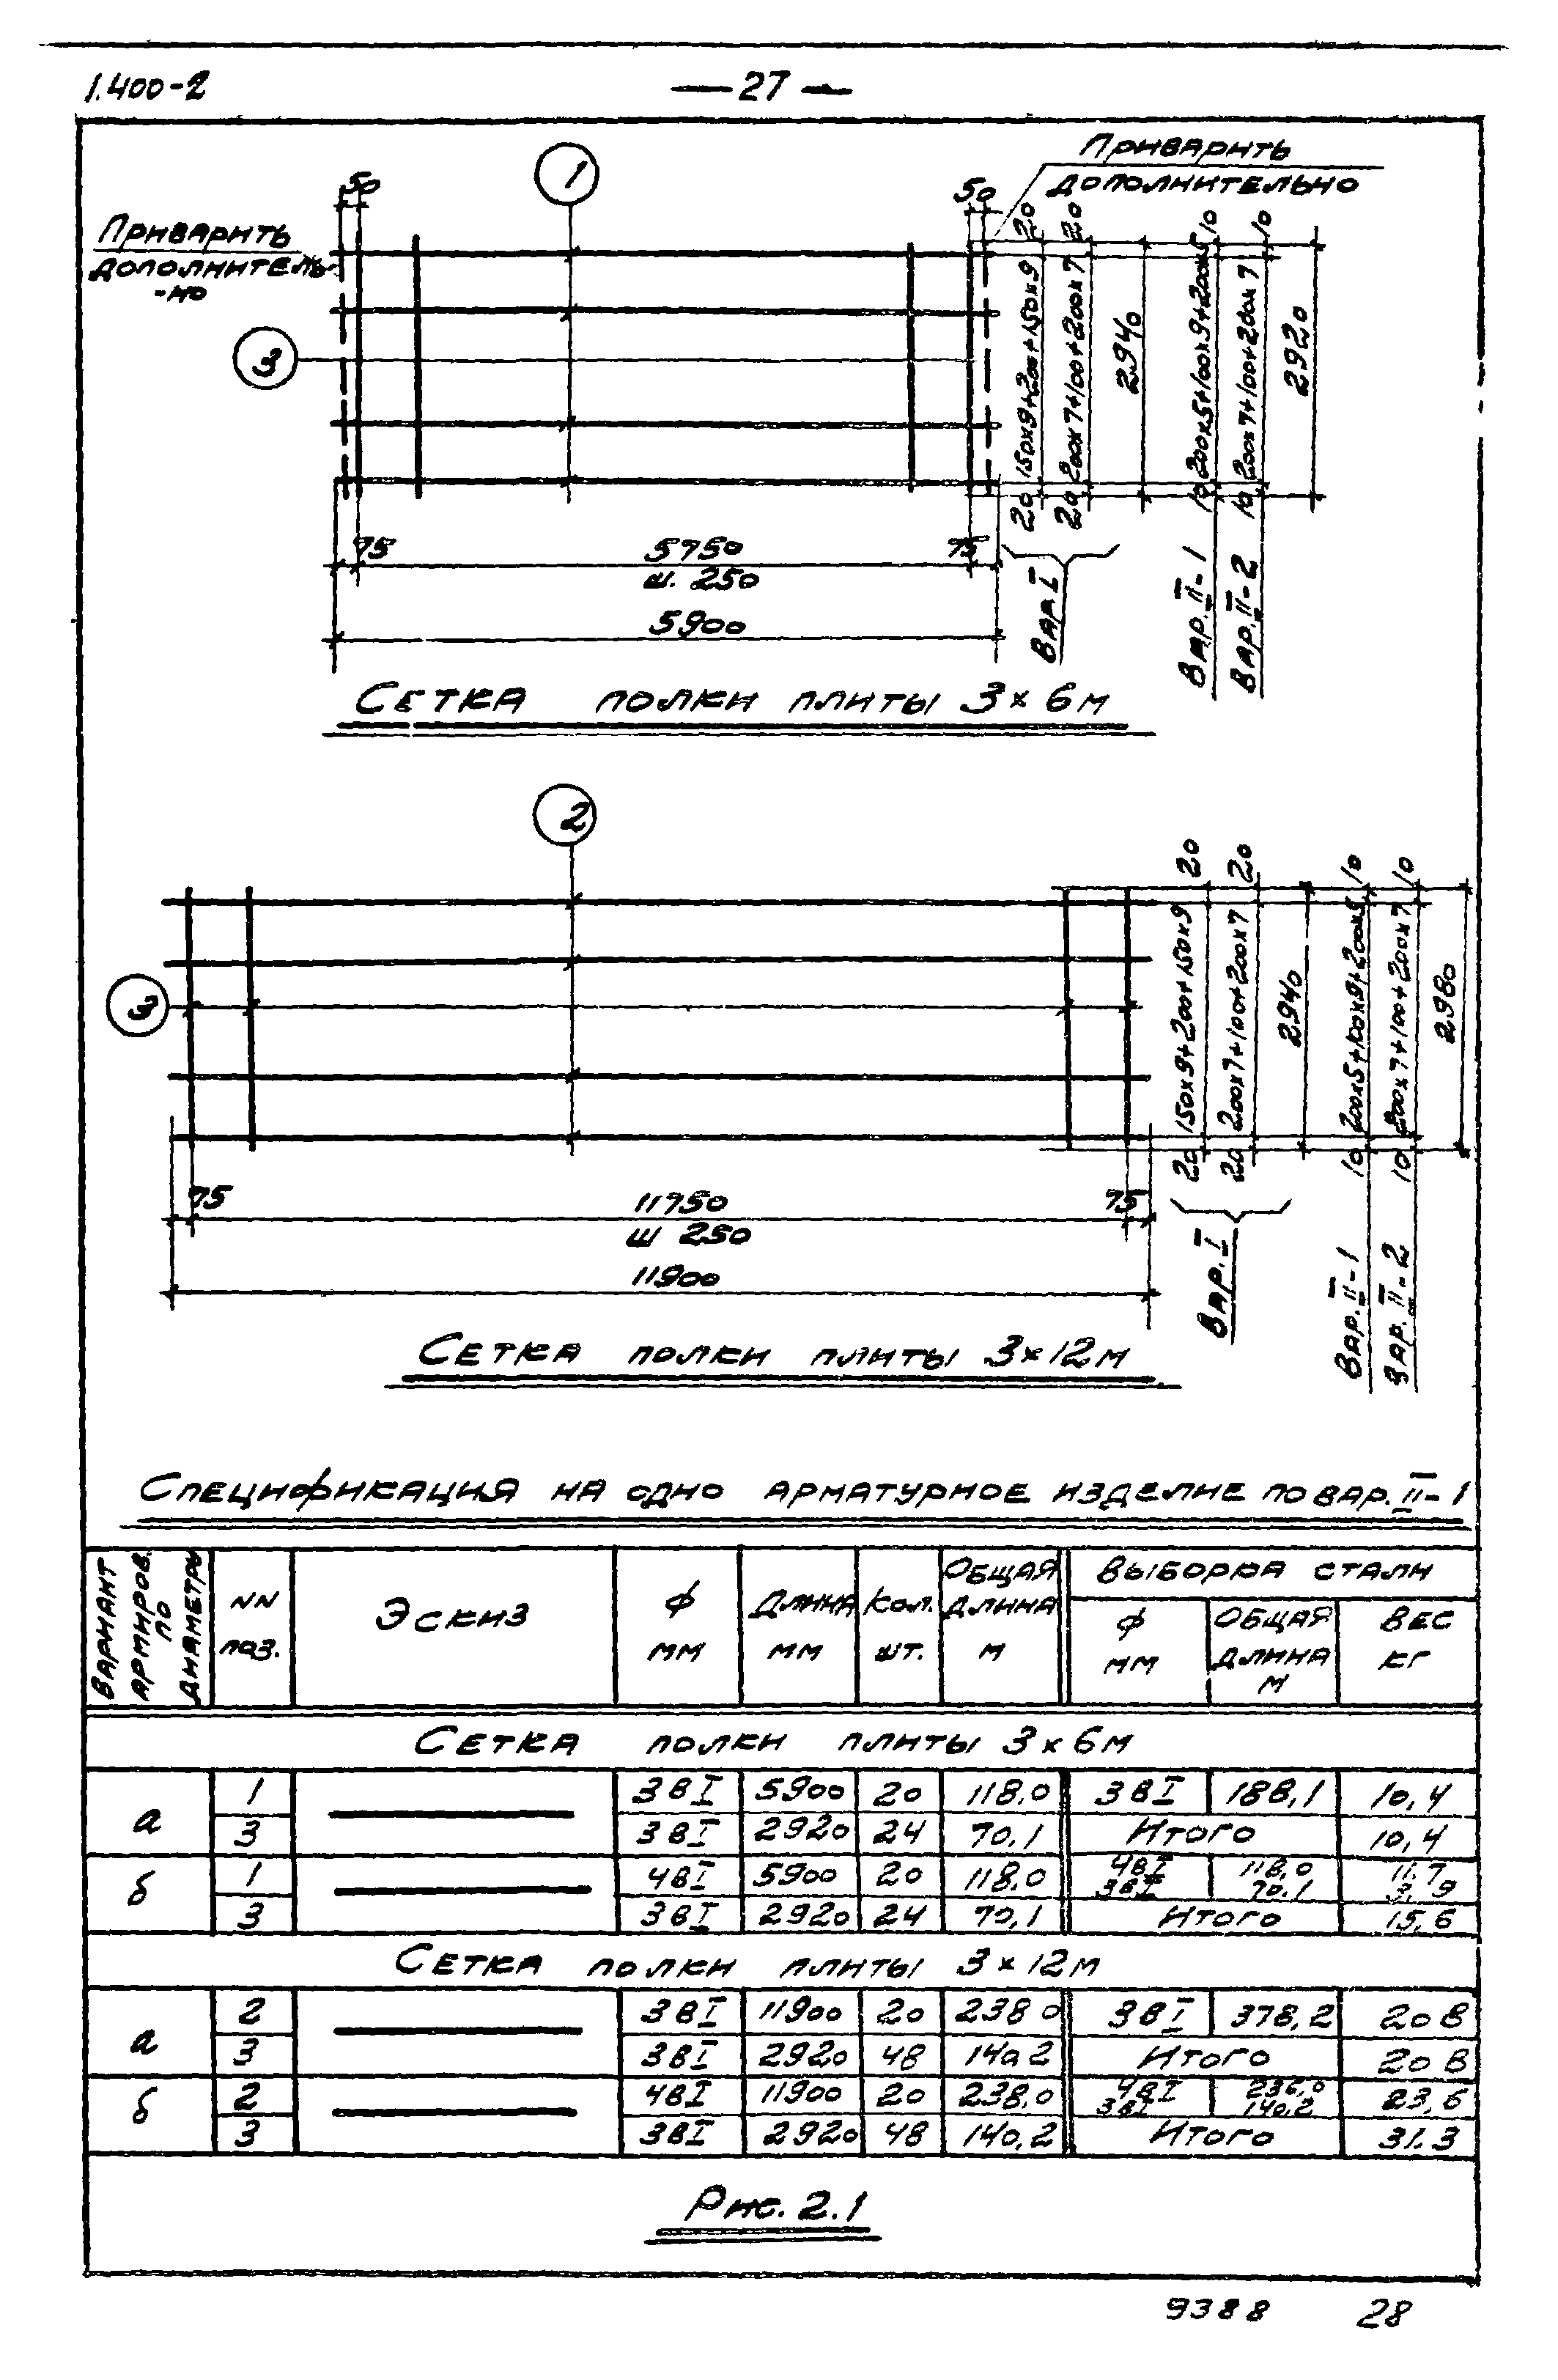 1.400-2
— 27 —
Приварить
дополнительно
Приварить
дополнитель
-но
50
1
50
3
20 150х9+200+150х9 20
20 200х7+100+200х7 20
2940
10 200х5+100х9+200х5 10
10 200х7+100+200х7 10
2920
75 5750 75
ш. 250
5900
Вар. I
Вар. II-1
Вар. II-2
Сетка полки плиты 3х6м
2
3
20 150х9+200+150х9 20
20 200х7+100+200х7 20
2940
10 200х5+100х9+200х5 10
10 200х7+100+200х7 10
2980
75 11750 75
ш 250
11900
Вар. I
Вар. II-1
Вар. II-2
Сетка полки плиты 3х12м
Спецификация на одно арматурное изделие по вар. II-1
Вариант армиров. по диаметру
NN поз.
Эскиз
ф мм
Длина мм
Кол. шт.
Общая длина м
Выборка стали
ф мм
Общая длина м
Вес кг
Сетка полки плиты 3х6м
а 1 3ВI 5900 20 118,0 3ВI 188,1 10,4
3 3ВI 2920 24 70,1 Итого 10,4
б 1 4ВI 5900 20 118,0 4ВI 118,0 11,7
3ВI 70,1 3,9
3 3ВI 2920 24 70,1 Итого 15,6
Сетка полки плиты 3х12м
а 2 3ВI 11900 20 238 0 3ВI 378,2 20 8
3 3ВI 2920 48 140 2 Итого 20 8
б 2 4ВI 11900 20 238,0 4ВI 23,6
3ВI 140,2
3 3ВI 2920 48 140,2 Итого 31.3
Рис. 2.1
9388 28